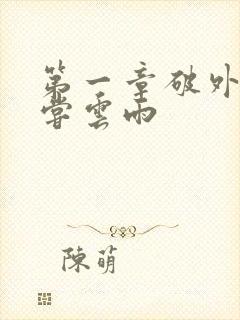 第一章破外
嘗雲雨
陳萌